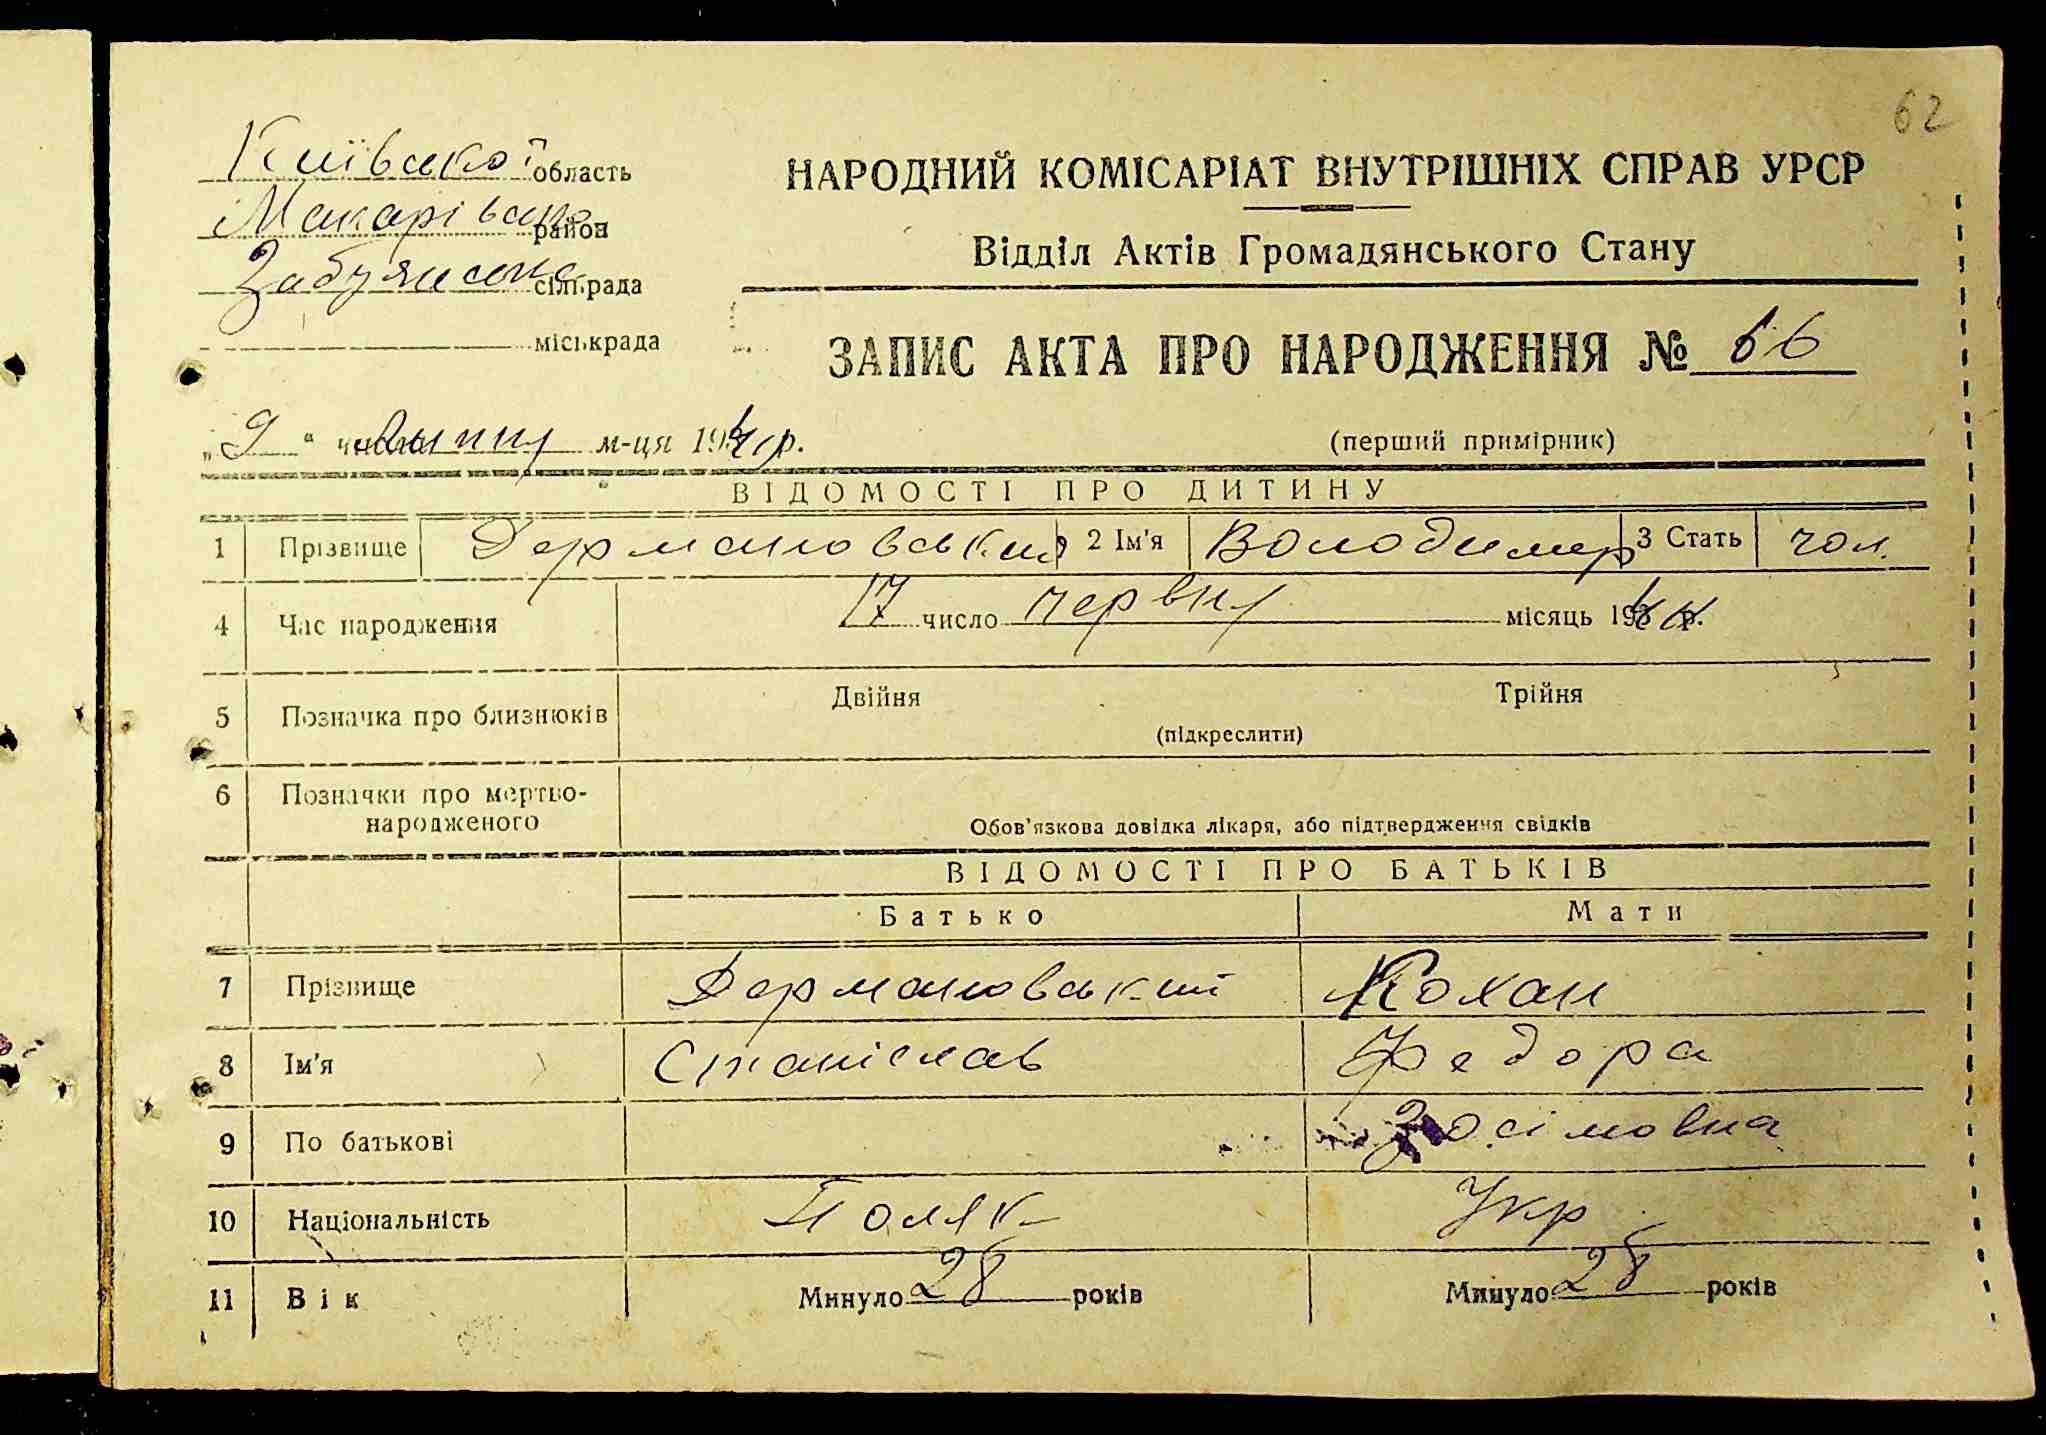 62
Київської область
Макарівський район
Забуянська сільрада
міськрада
НАРОДНИЙ КОМІСАРІАТ ВНУТРІШНІХ СПРАВ УРСР
Відділ Актів Громадянського Стану
ЗАПИС АКТА ПРО НАРОДЖЕННЯ №
„9“ число липня м-ця 19 р.
(перший примірник)
ВІДОМОСТІ ПРО ДИТИНУ
1 Прізвище Дермановський 2 Ім'я Володимер 3 Стать чол.
4 Час народження 17 число червня місяць 19 р.
5 Позначка про близнюків Двійня Трійня
(підкреслити)
6 Позначки про мертво-
народженого
Обов'язкова довідка лікаря, або підтвердження свідків
ВІДОМОСТІ ПРО БАТЬКІВ
Батько Мати
7 Прізвище Дермановський Кохан
8 Ім'я Станіслав Федора
9 По батькові Зосімовна
10 Національність Поляк Укр
11 Вік Минуло 28 років Минуло років